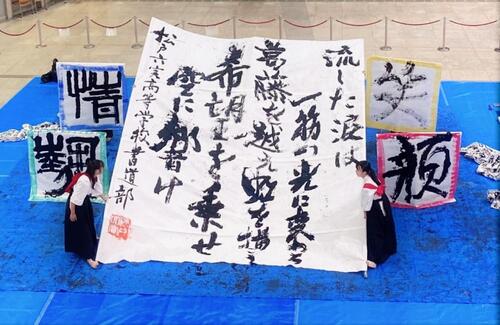 流した涙は
一筋の光に変わり
葛藤を越え虹を描き
希望を乗せ
空に響け
松戸六実高等学校書道部
笑
顔
情